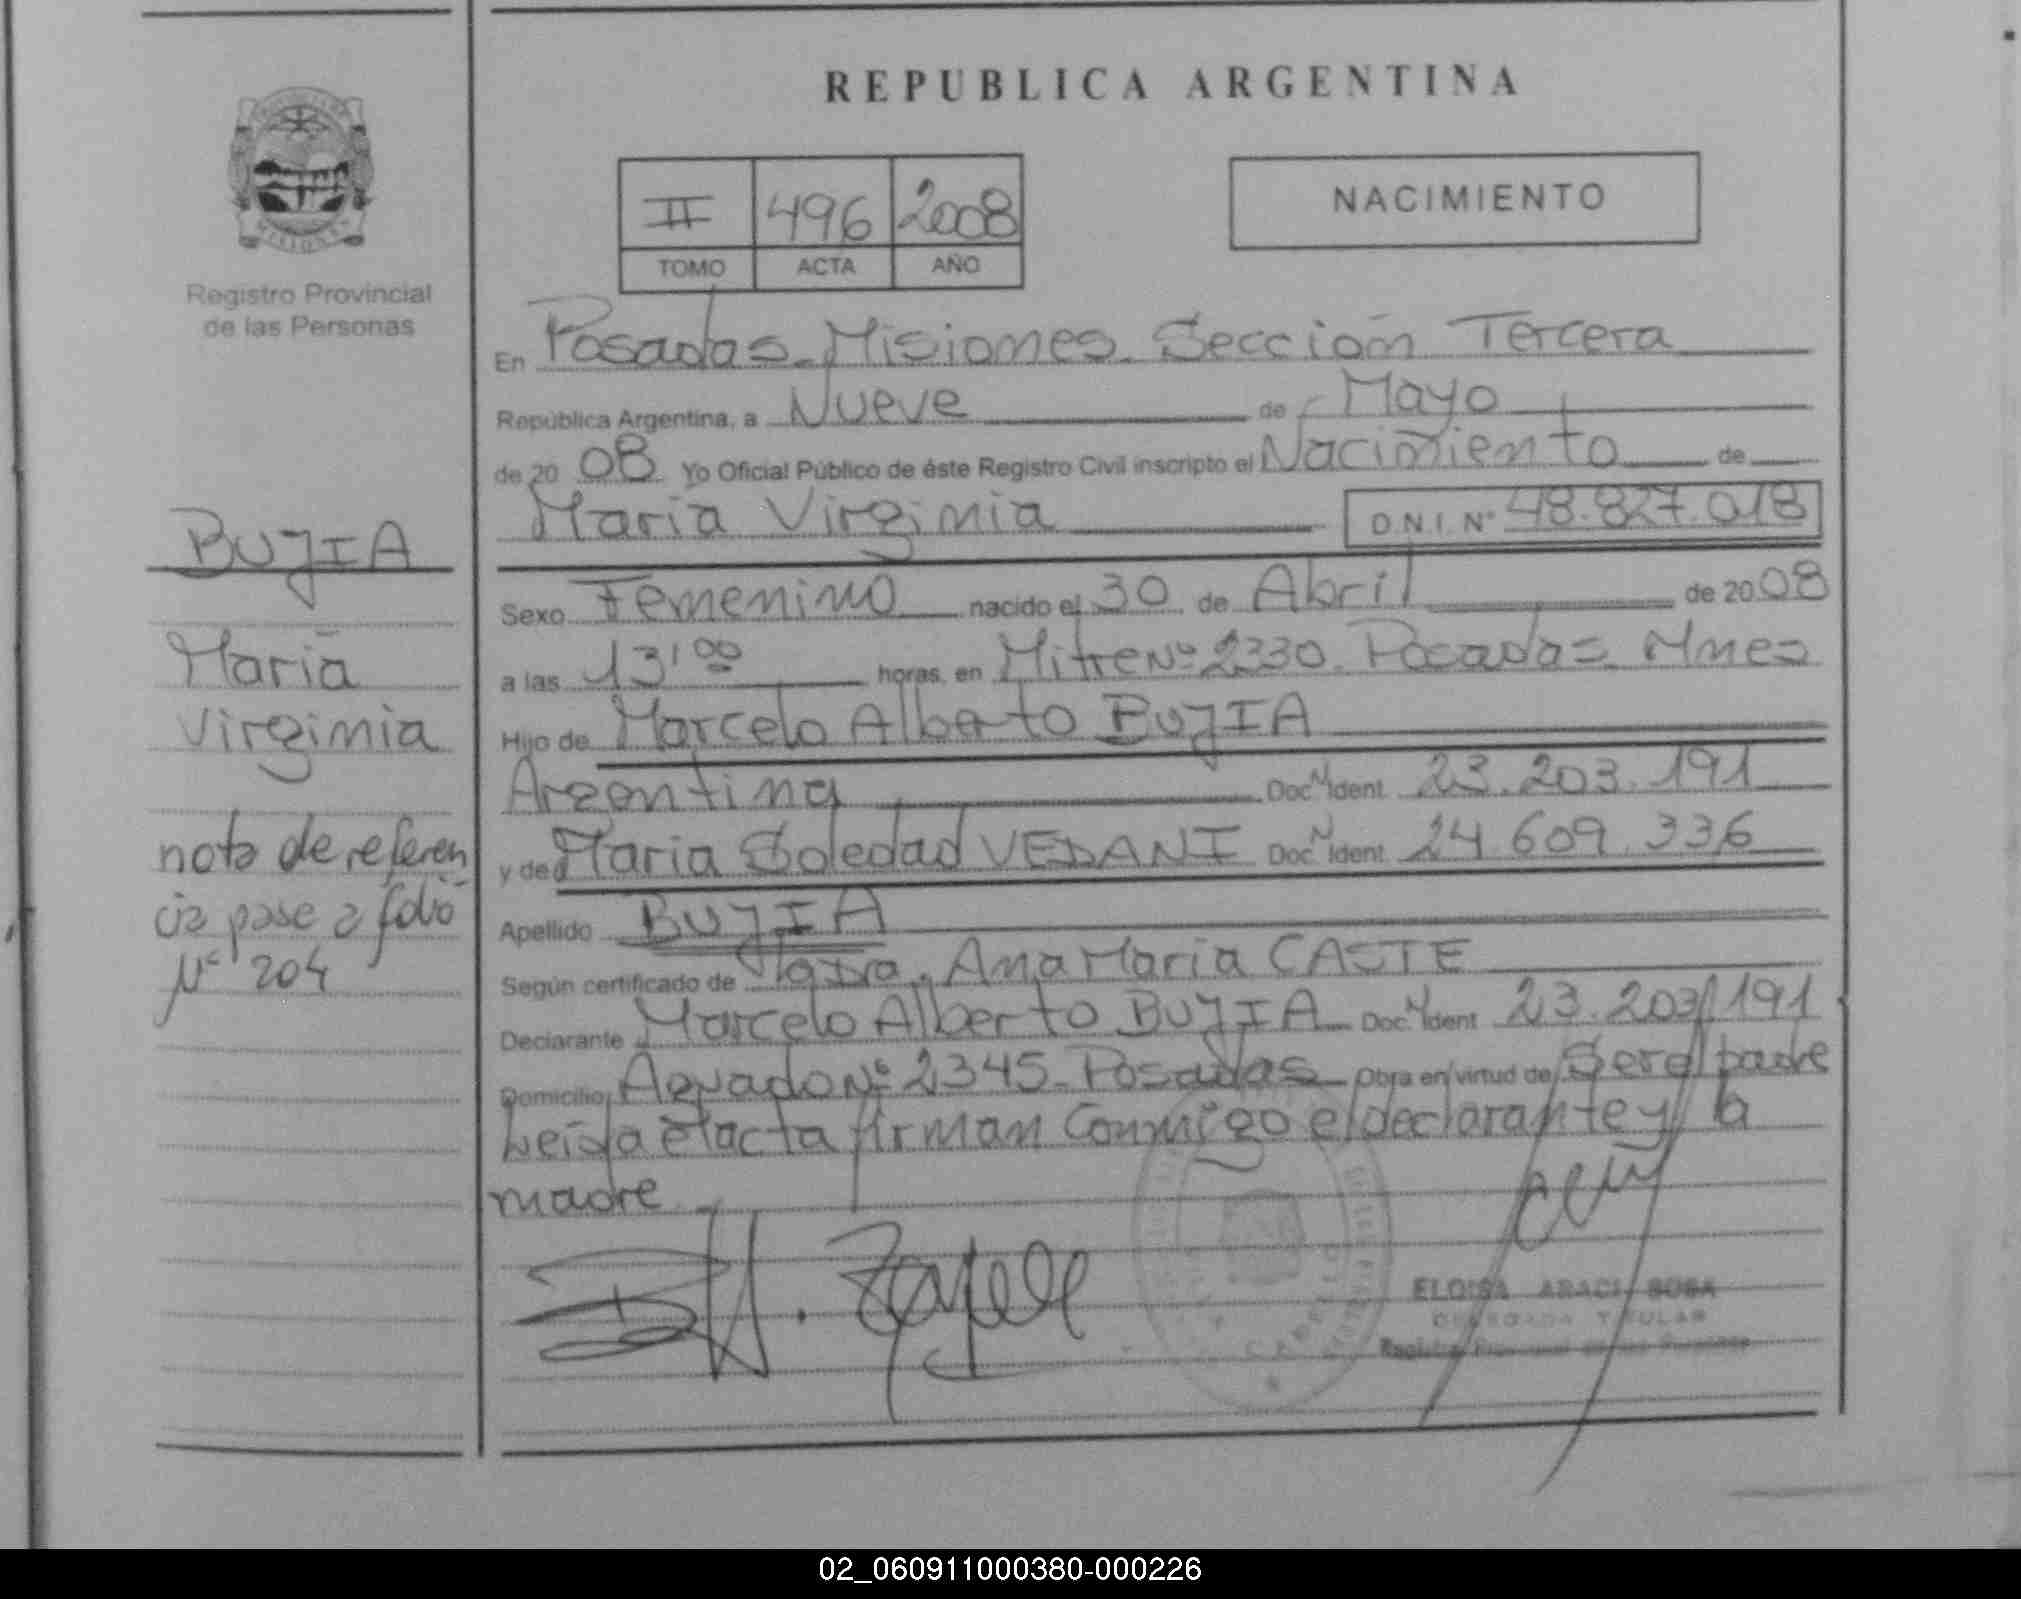 REPUBLICA ARGENTINA
II 496 2008
TOMO ACTA AÑO
NACIMIENTO
MISIONES
Registro Provincial
de las Personas
BUJIA
Maria
Virginia
nota de referen
cia pase a folio
Nº 204
En Posadas Misiones Sección Tercera
República Argentina, a Nueve de Mayo
de 20 08 Yo Oficial Público de éste Registro Civil inscripto el Nacimiento de
Maria Virginia D.N.I. Nº 48.827.018
Sexo Femenino nacido el 30 de Abril de 20 08
a las 13'00 horas, en Mitre Nº 2330. Posadas Mnes
Hijo de Marcelo Alberto BUJIA
Argentina Doc. N Ident. 23.203.191
y de Maria Soledad VEDANI Doc. N Ident. 24.609.336
Apellido BUJIA
Según certificado de Ana Maria CASTE
Declarante Marcelo Alberto BUJIA Doc. N Ident 23.203.191
Domicilio Aguado Nº 2345 - Posadas Obra en virtud de Ser el padre
Leida el acta firman Conmigo el declarante y la
madre
ELOISA ARACI SOSA
DELEGADA TITULAR
Registro Provincial de las Personas
02_060911000380-000226